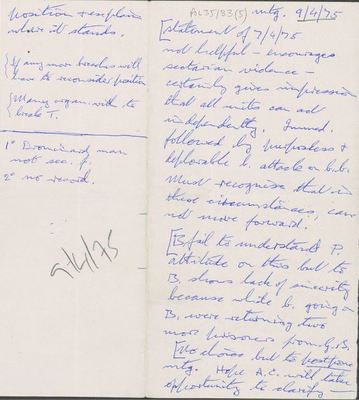 position & explain
where it stands.
{If any more breaches will
have to reconsider position
{Many organ. wish to
break T.
1° Drominad man
not sec. f.
2° no record.
9/4/75
AL35/83(5) mtg. 9/4/75
[Statement of 7/4/75
not helpful – encourages
sectarian violence –
certainly gives impression
that all units can act
independently. Immed.
followed by purposeless &
deplorable b. attack on b.b.
Must recognise that in
these circumstances, can
not move forward.
[B. fail to understand P.
attitude on this but to
B. shows lack of sincerity
because while b. going on
B. were returning two
more prisoners from G.B.
[No choice but to postpone
mtg. Hope A.C. will take
opportunity to clarify –